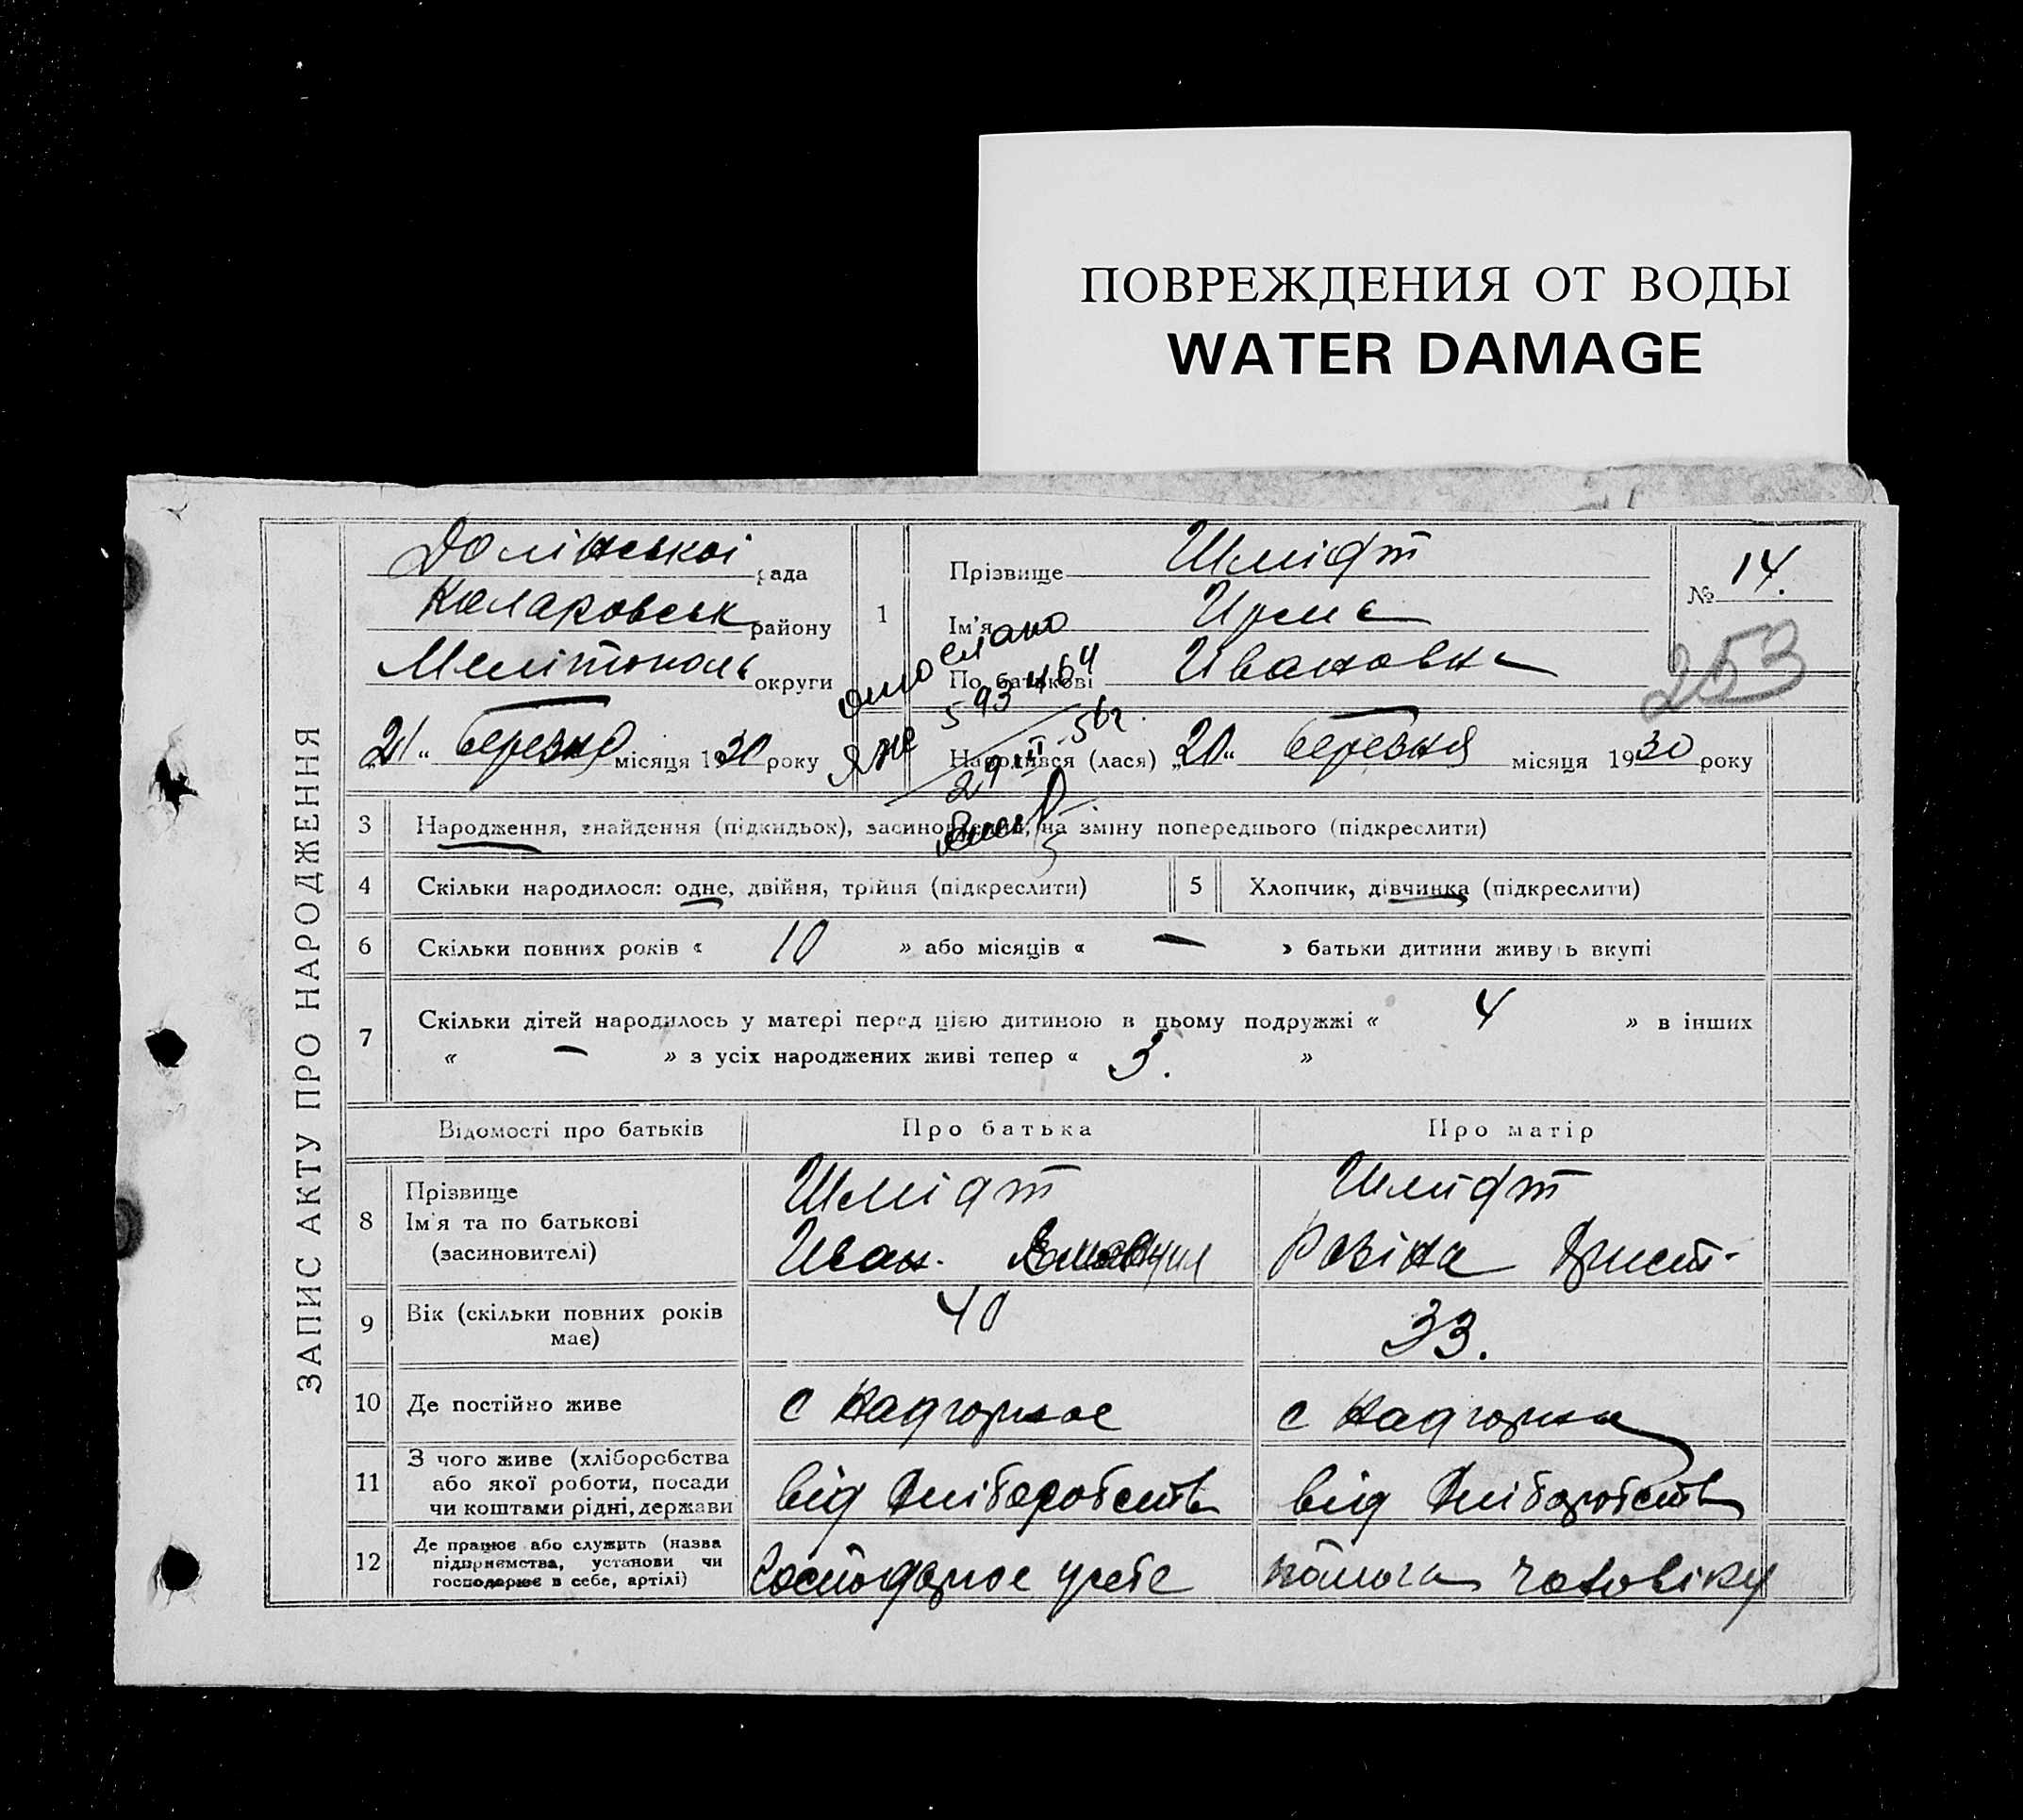 ПОВРЕЖДЕНИЯ ОТ ВОДЫ
WATER DAMAGE
ЗАПИС АКТУ ПРО НАРОДЖЕННЯ
Долінської рада
Коларовськ району
Мелітополь округи
„21“ березня місяця 1930 року
1
Прізвище Шмідт
Ім'я Ирма
По батькові Ивановна
№ 14.
253
отослано
ЯЖ 593464
29 II 56г.
Народився (лася) „20“ березня місяця 1930 року
3 Народження, знайдення (підкидьок), засиновлення, на зміну попереднього (підкреслити)
4 Скільки народилося: одне, двійня, трійня (підкреслити)
5 Хлопчик, дівчинка (підкреслити)
6 Скільки повних років « 10 » або місяців « — » батьки дитини живуть вкупі
7 Скільки дітей народилось у матері перед цією дитиною в цьому подружжі « 4 » в інших
« — » з усіх народжених живі тепер « 3. »
Відомості про батьків Про батька Про матір
8 Прізвище
Ім'я та по батькові
(засиновителі)
Шмідт
Иван.
Шмидт
Розіна Христ-
9 Вік (скільки повних років має) 40 33.
10 Де постійно живе с Надгорное с Надгорна
11 З чого живе (хліборобства
або якої роботи, посади
чи коштами рідні, держави
від Хліборобств
від Хліборобств
12 Де працює або служить (назва
підприємства, установи чи
господарює в себе, артілі)
Господарює у себе
помога чоловіку